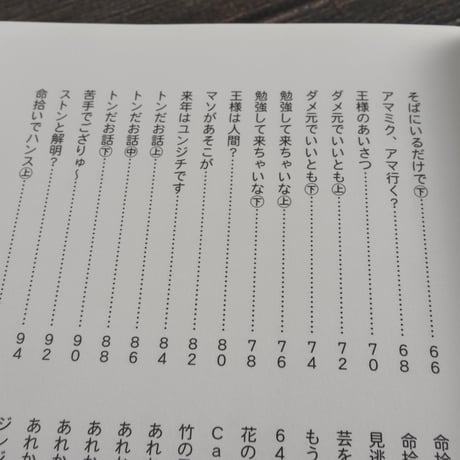 そばにいるだけで㊦……66
アマミク、アマ行く？……68
王様のあいさつ……70
ダメ元でいいとも㊤……72
ダメ元でいいとも㊦……74
勉強して来ちゃいな㊤……76
勉強して来ちゃいな㊦……78
王様は人間？……80
マソがあそこが……82
来年はユンジチです……84
トンだお話㊤……86
トンだお話㊥……88
トンだお話㊦……90
苦手でござりゅ〜……92
ストンと解明？……94
命拾いでハンス㊤
命
命拾
見逃
芸を
もう
64
花の
Ca
竹の
あれ
あれか
あれか
あれか
あれか
ジン